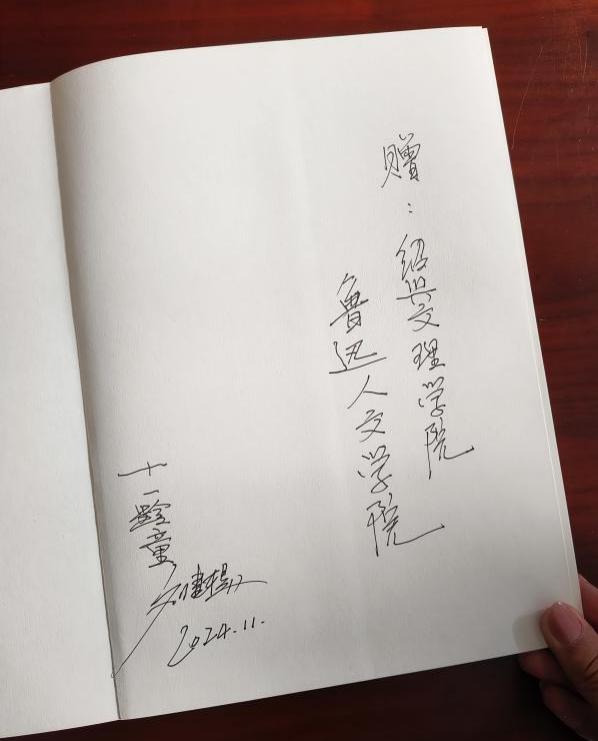 赠：绍兴文理学院
鲁迅人文学院
十一龄童
2024.11.